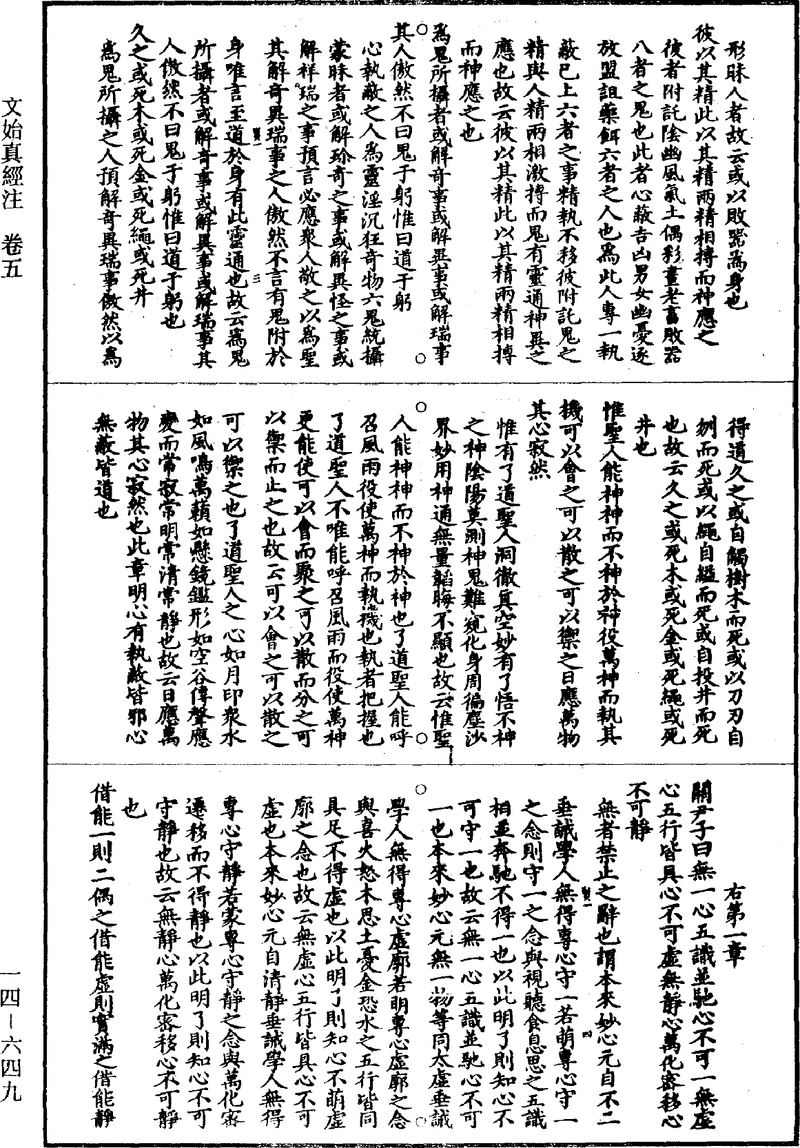 文始真經注　卷五
一四－六四九
形昧人者故云或以敗器為身也
彼以其精此以其精兩精相搏而神應之
彼者附託陰幽風氣土偶彩畫老畜敗器
八者之鬼也此者心蔽吉凶男女幽憂逐
放盟詛藥餌六者之人也為此人專一執
蔽已上六者之事精執不移彼附託鬼之
精與人精兩相激搏而鬼有靈通神異之
應也故云彼以其精此以其精兩精相搏
而神應之也
為鬼所攝者或解奇事或解異事或解瑞事
其人傲然不曰鬼于躬惟曰道于躬
心執蔽之人為靈淫沉狂奇物六鬼統攝
蒙昧者或解珍奇之事或解異怪之事或
解祥瑞之事預言必應衆人敬之以為聖
其解奇異瑞事之人傲然不言有鬼附於
身唯言至道於身有此靈通也故云為鬼
所攝者或解奇事或解異事或解瑞事其
人傲然不曰鬼于躬惟曰道于躬也
久之或死木或死金或死繩或死井
為鬼所攝之人預解奇異瑞事傲然以為
得道久之或自觸樹木而死或以刀刃自
刎而死或以繩自縊而死或自投井而死
也故云久之或死木或死金或死繩或死
井也
惟聖人能神神而不神於神役萬神而執其
機可以會之可以散之可以禦之日應萬物
其心寂然
惟有了道聖人洞徹真空妙有了悟不神
之神陰陽莫測神鬼難窺化身周徧塵沙
界妙用神通無量韜晦不顯也故云惟聖
人能神神而不神於神也了道聖人能呼
召風雨役使萬神而執機也執者把握也
了道聖人不唯能呼召風雨而役使萬神
更能使可以會而聚之可以散而分之可
以禦而止之也故云可以會之可以散之
可以禦之也了道聖人之心如月印衆水
如風鳴萬籟如懸鏡鑑形如空谷傳聲應
變而常寂常明常清常靜也故云日應萬
物其心寂然也此章明心有執蔽皆邪心
無蔽皆道也
右第一章
關尹子曰無一心五識並馳心不可一無虛
心五行皆具心不可虛無靜心萬化密移心
不可靜
無者禁止之辭也謂本來妙心元自不二
垂誡學人無得專心守一若萌專心守一
之念則守一之念與視聽食息思之五識
相並奔馳不得一也以此明了則知心不
可守一也故云無一心五識並馳心不可
一也本來妙心元無一物等同太虛垂誡
學人無得專心虛廓若明專心虛廓之念
與喜火怒木思土憂金恐水之五行皆同
具足不得虛也以此明了則知心不萌虛
廓之念也故云無虛心五行皆具心不可
虛也本來妙心元自清靜垂誡學人無得
專心守靜若蒙專心守靜之念與萬化密
遷移而不得靜也以此明了則知心不可
守靜也故云無靜心萬化密移心不可靜
也
借能一則二偶之借能虛則實滿之借能靜